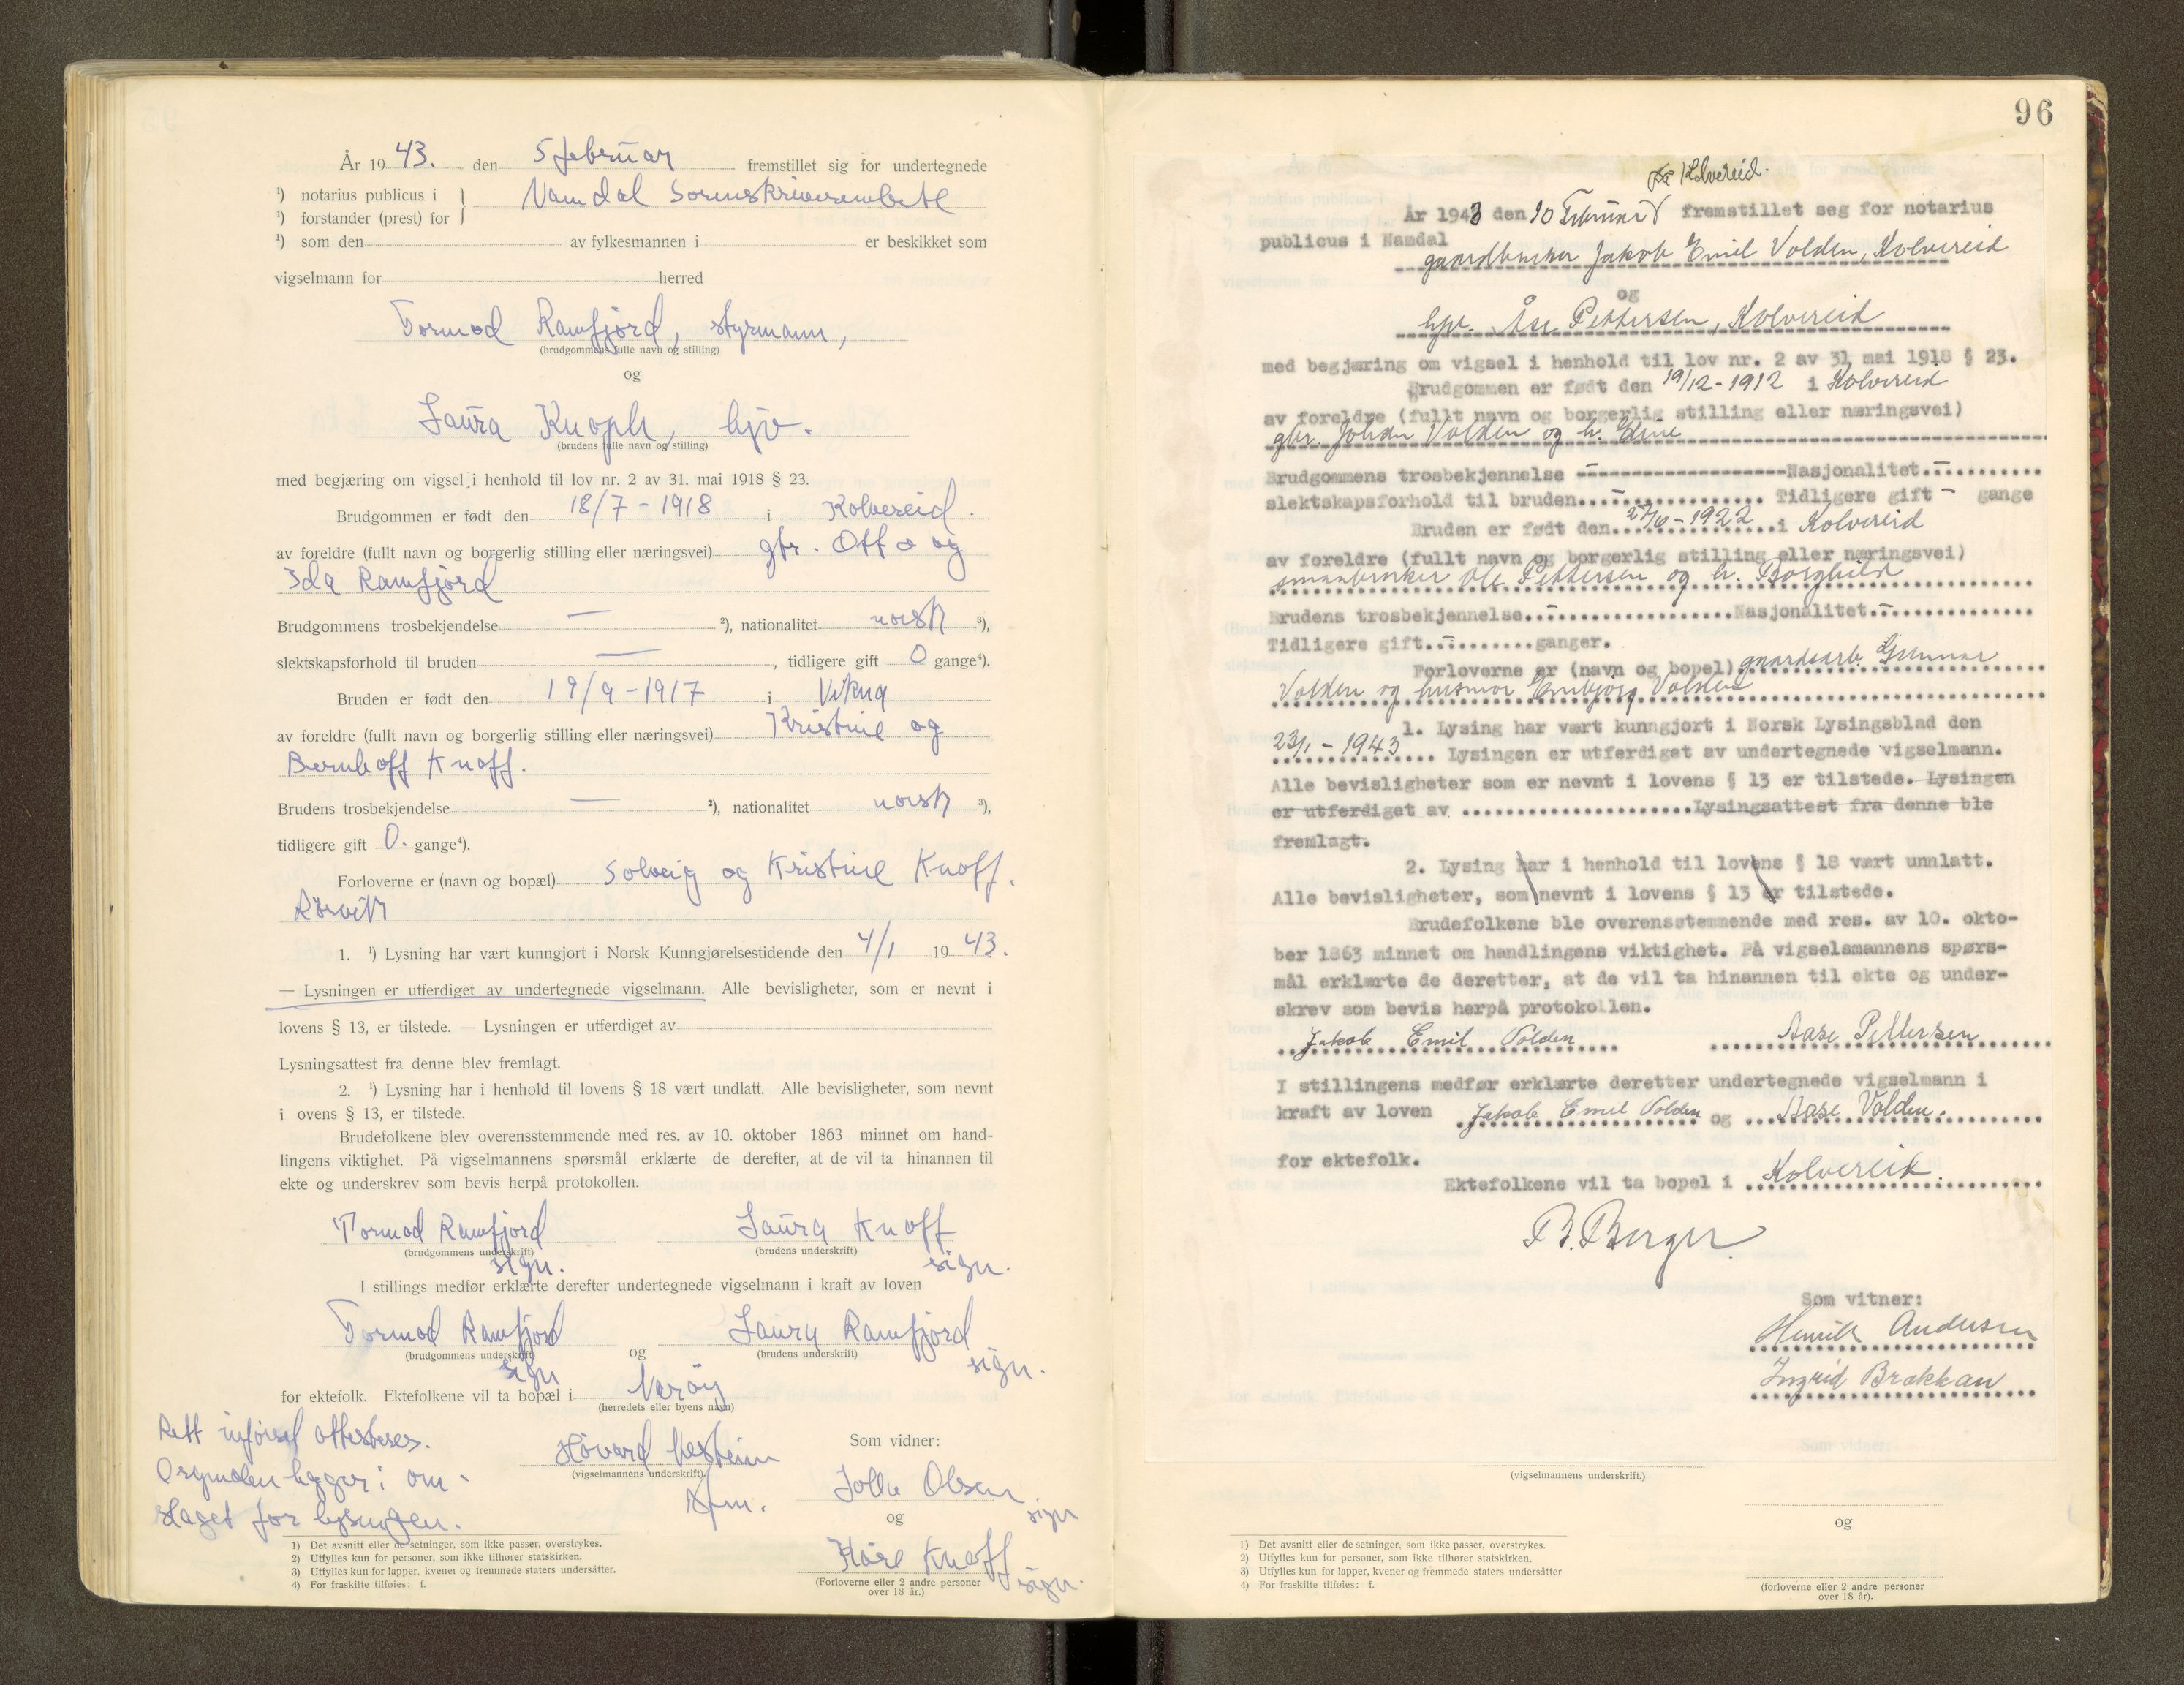 År 1943. den 5 februar fremstillet sig for undertegnede
¹) notarius publicus i } Namdal Sorenskriverembete
¹) forstander (prest) for }
¹) som den av fylkesmannen i er beskikket som
vigselmann for herred
Tormod Ramfjord, styrmann,
(brudgommens fulle navn og stilling)
og
Laura Knoph, hjv.
(brudens fulle navn og stilling)
med begjæring om vigsel i henhold til lov nr. 2 av 31. mai 1918 § 23.
Brudgommen er født den 18/7 - 1918 i Kolvereid.
av foreldre (fullt navn og borgerlig stilling eller næringsvei) gbr. Otto og
Ida Ramfjord
Brudgommens trosbekjendelse — ²), nationalitet norsk ³),
slektskapsforhold til bruden —, tidligere gift 0 gange⁴).
Bruden er født den 19/9 - 1917 i Vikna
av foreldre (fullt navn og borgerlig stilling eller næringsvei) Kristine og
Bernhoff Knoff.
Brudens trosbekjendelse — ²), nationalitet norsk ³),
tidligere gift 0. gange⁴).
Forloverne er (navn og bopæl) Solveig og Kristine Knoff.
Rørvik
1. ¹) Lysning har vært kunngjort i Norsk Kunngjørelsestidende den 4/1 1943.
— Lysningen er utferdiget av undertegnede vigselmann. Alle bevisligheter, som er nevnt i
lovens § 13, er tilstede. — Lysningen er utferdiget av
Lysningsattest fra denne blev fremlagt.
2. ¹) Lysning har i henhold til lovens § 18 vært undlatt. Alle bevisligheter, som nevnt
i ovens § 13, er tilstede.
Brudefolkene blev overensstemmende med res. av 10. oktober 1863 minnet om hand-
lingens viktighet. På vigselmannens spørsmål erklærte de derefter, at de vil ta hinannen til
ekte og underskrev som bevis herpå protokollen.
Tormod Ramfjord Laura Knoff
(brudgommens underskrift) (brudens underskrift)
sign. sign.
I stillings medfør erklærte derefter undertegnede vigselmann i kraft av loven
Tormod Ramfjord og Laura Ramfjord
(brudgommens underskrift) (brudens underskrift)
sign sign.
for ektefolk. Ektefolkene vil ta bopæl i Nærøy
(herredets eller byens navn)
Rett innførsel attesteres.
Orginalen ligger i om-
slaget for lysingen.
Håvard Vestheim
(vigselmannens underskrift)
Som vidner:
Olsen sign
og
Kåre Knoff sign.
(Forloverne eller 2 andre personer
over 18 år.)
1) Det avsnitt eller de setninger, som ikke passer, overstrykes.
2) Utfylles kun for personer, som ikke tilhører statskirken.
3) Utfylles kun for lapper, kvener og fremmede staters undersåtter.
4) For fraskilte tilføies: f.
96
på Kolvereid.
År 1943 den 10 Februar fremstillet seg for notarius
publicus i Namdal
gaardbruker Jakob Emil Volden, Kolvereid
og
hjv. Åse Pettersen, Kolvereid
med begjæring om vigsel i henhold til lov nr. 2 av 31 mai 1918 § 23.
Brudgommen er født den 19/12 - 1912 i Kolvereid
av foreldre (fullt navn og borgerlig stilling eller næringsvei)
gbr. Johan Volden og h. Eline
Brudgommens trosbekjennelse — Nasjonalitet. —
slektskapsforhold til bruden. — Tidligere gift — gange
Bruden er født den 27/6 - 1922 i Kolvereid
av foreldre (fullt navn og borgerlig stilling eller næringsvei)
småbruker Ole Pettersen og h. Borghild
Brudens trosbekjennelse. — Nasjonalitet. —
Tidligere gift. — ganger.
Forloverne er (navn og bopel) gaardsarb. Gunnar
Volden og husmor Embjørg Volden
1. Lysing har vært kunngjort i Norsk Lysingsblad den
23/1 - 1943 Lysingen er utferdiget av undertegnede vigselmann.
Alle bevisligheter som er nevnt i lovens § 13 er tilstede. Lysingen
er utferdiget av Lysingsattest fra denne ble
fremlagt.
2. Lysing har i henhold til lovens § 18 vært unnlatt.
Alle bevisligheter, som nevnt i lovens § 13 er tilstede.
Brudefolkene ble overensstemmende med res. av 10. okto-
ber 1863 minnet om handlingens viktighet. På vigselsmannens spørs-
mål erklærte de deretter, at de vil ta hinannen til ekte og under-
skrev som bevis herpå protokollen.
Jakob Emil Volden Aase Pettersen
I stillingens medfør erklærte deretter undertegnede vigselmann i
kraft av loven Jakob Emil Volden og Aase Volden.
for ektefolk.
Ektefolkene vil ta bopel i Kolvereid.
B. Berger
Som vitner:
Henrik Andersen
Ingrid Brækkan
(vigselmannens underskrift.)
og
(forloverne eller 2 andre personer
over 18 år).
1) Det avsnitt eller de setninger, som ikke passer, overstrykes.
2) Utfylles kun for personer, som ikke tilhører statskirken.
3) Utfylles kun for lapper, kvener og fremmede staters undersåtter
4) For fraskilte tilføies: f.